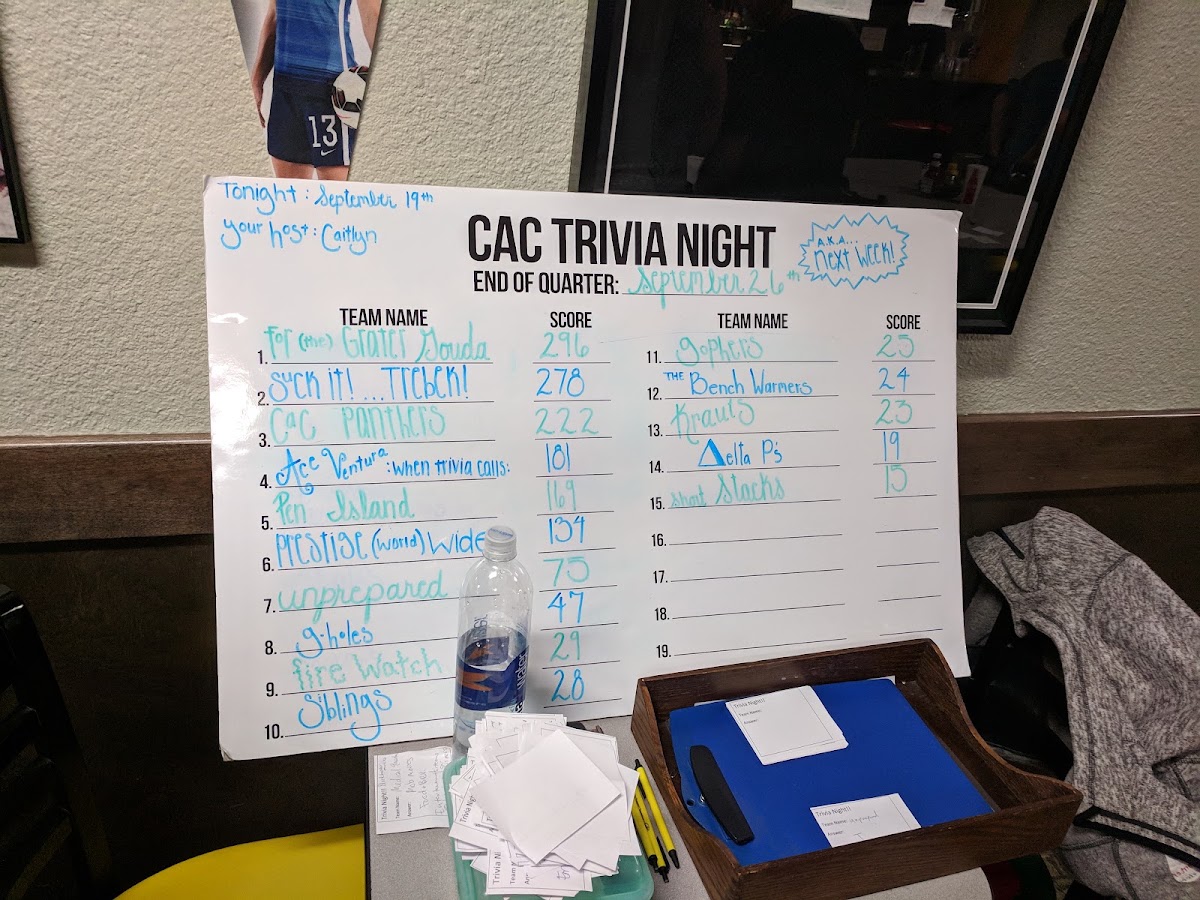 13
Tonight: September 19th
your host: Caitlyn
CAC TRIVIA NIGHT
A.K.A...
next week!
END OF QUARTER: September 26th
TEAM NAME SCORE
1. For (the) Grater Gouda 296
2. Suck it! ...Trebek! 278
3. CAC Panthers 222
4. Ace Ventura: when trivia calls: 181
5. Pen Island 169
6. Prestige (world) Wide 134
7. unprepared 75
8. g-holes 47
9. fire watch 29
10. Siblings 28
TEAM NAME SCORE
11. gophers 25
12. THE Bench Warmers 24
13. Krauts 23
14. Δelta P's 19
15. Short Stacks 15
16.
17.
18.
19.
Trivia Night!!
Team Name:
Answer:
Trivia Night!!
Team Name:
Answer:
Trivia Night!!
Team Name:
Answer: